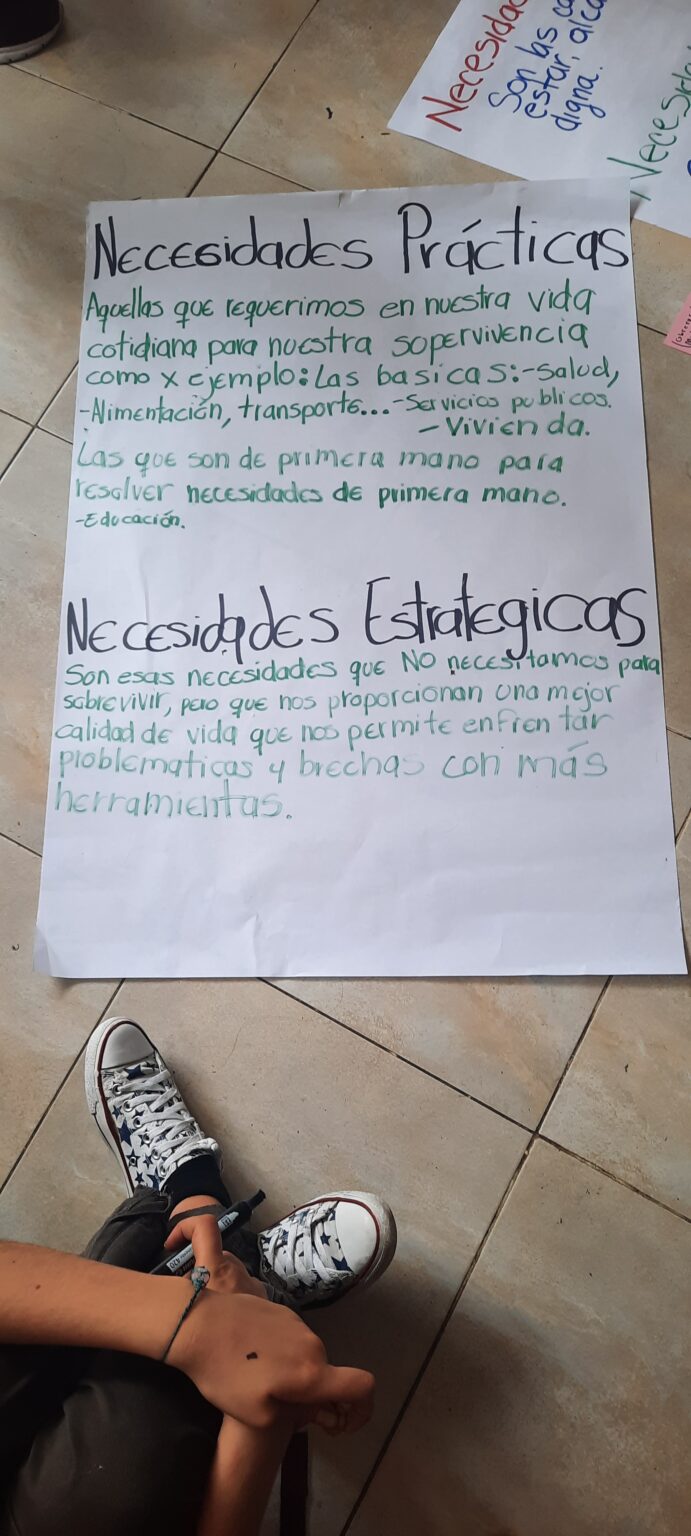 Necesidades Prácticas
Aquellas que requerimos en nuestra vida
cotidiana para nuestra sopervivencia
como x ejemplo: Las basicas: -Salud,
-Alimentación, transporte... -Servicios publicos.
- Vivienda.
Las que son de primera mano para
resolver necesidades de primera mano.
-Educación.
Necesidades Estrategicas
Son esas necesidades que NO necesitamos para
sobrevivir, pero que nos proporcionan una mejor
calidad de vida que nos permite enfrentar
problematicas y brechas con más
herramientas.
Son las
estar,
digna.